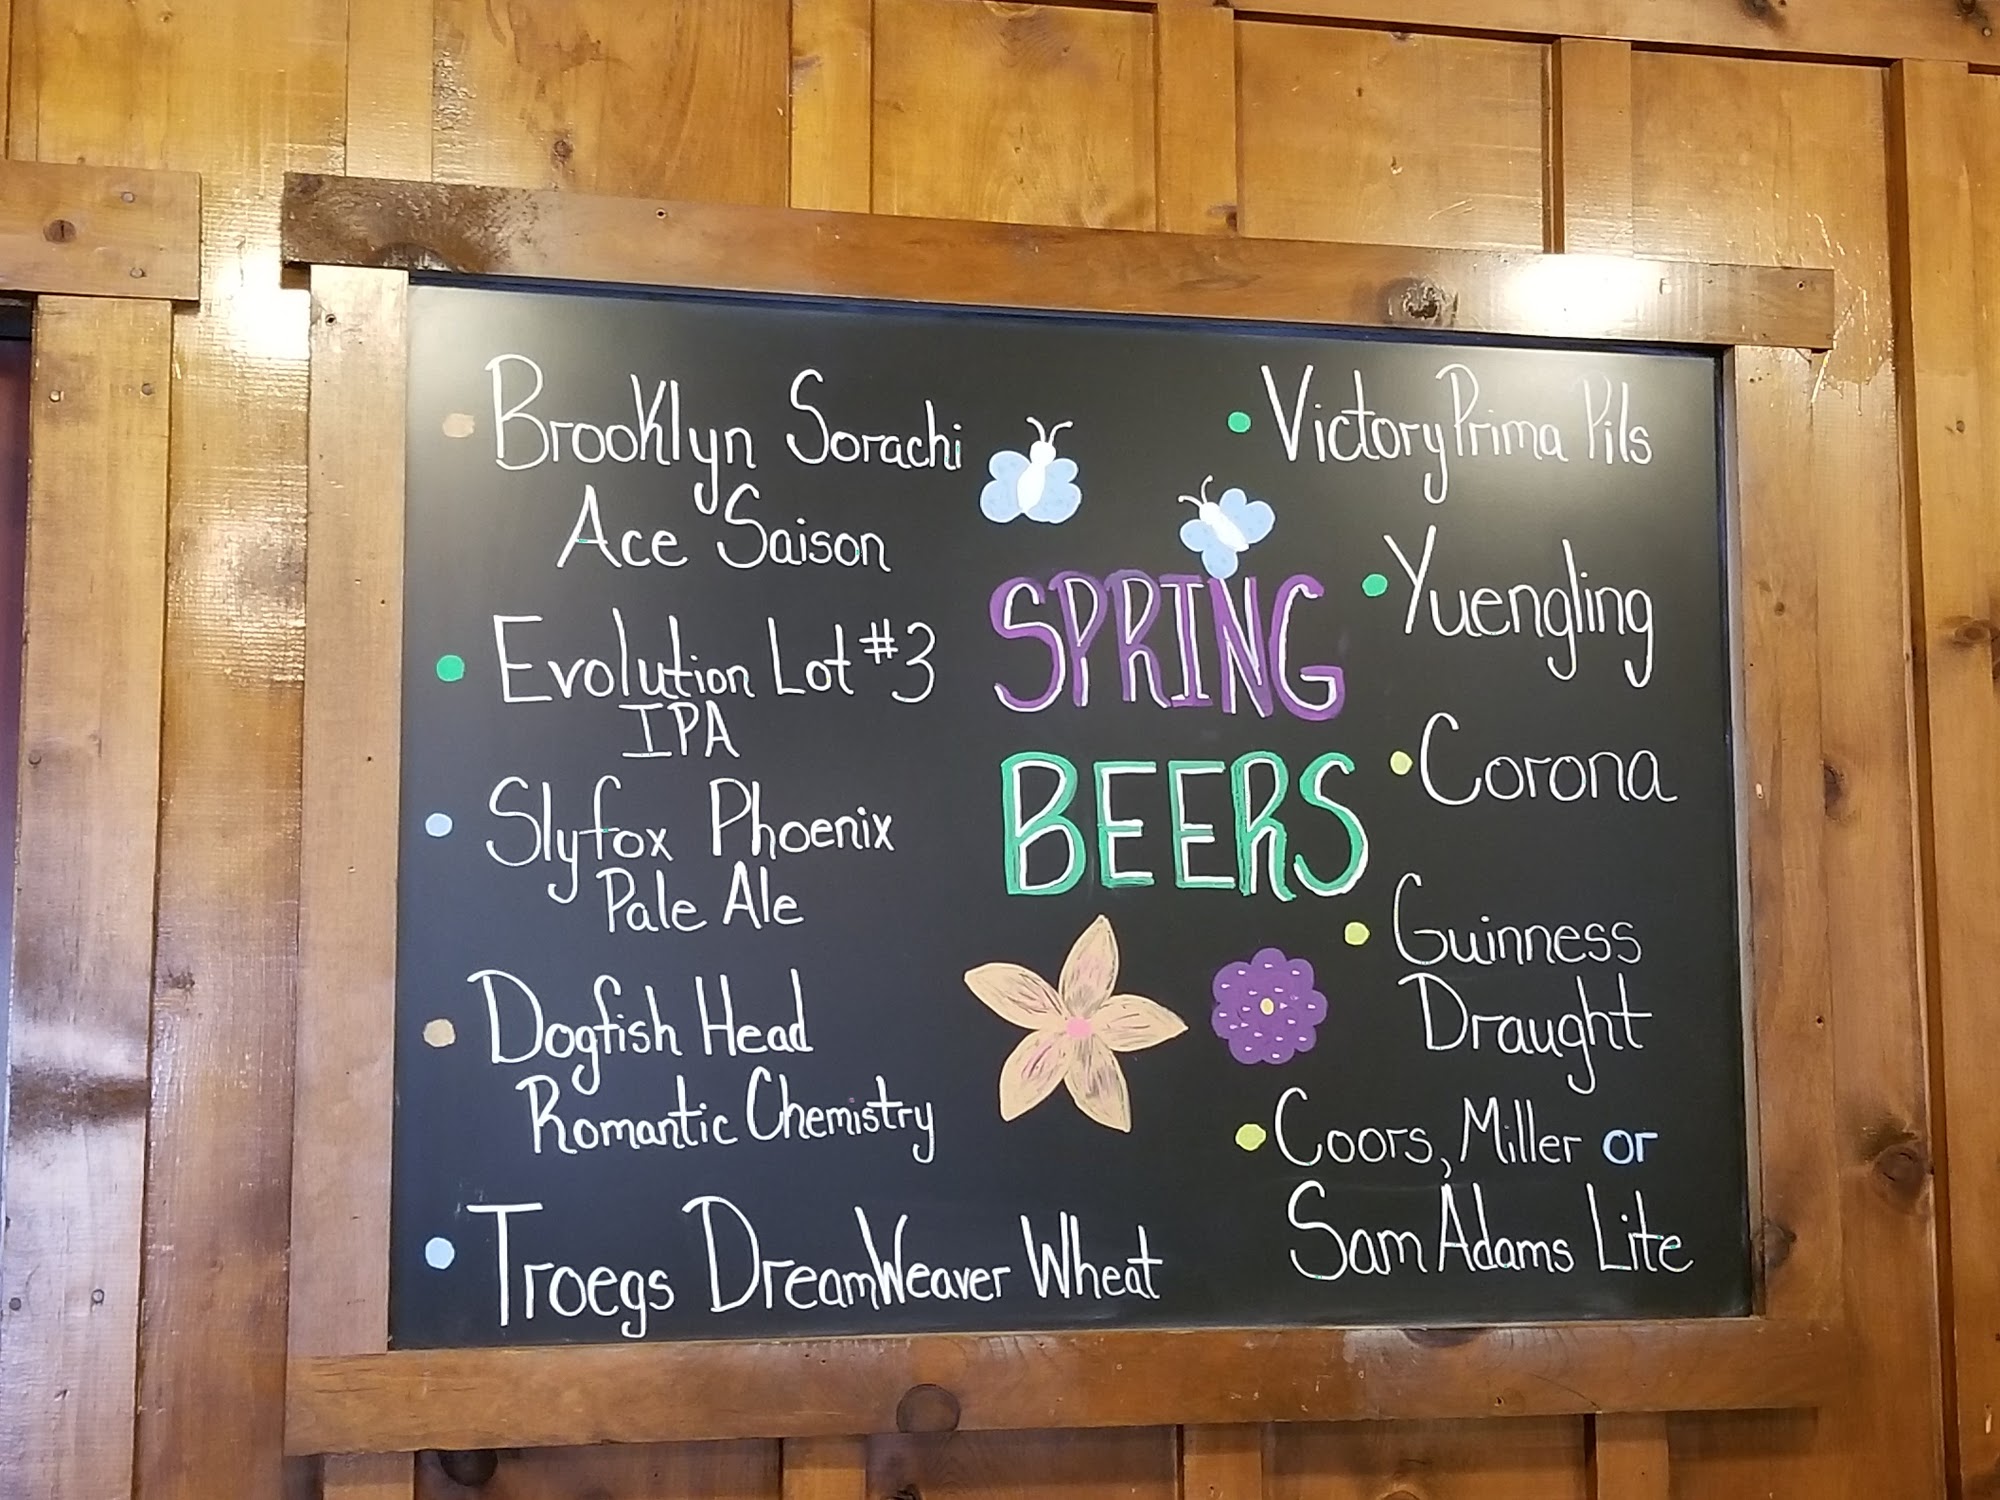 Brooklyn Sorachi
Ace Saison
Evolution Lot #3
IPA
Slyfox Phoenix
Pale Ale
Dogfish Head
Romantic Chemistry
Troegs DreamWeaver Wheat
SPRING
BEERS
Victory Prima Pils
Yuengling
Corona
Guinness
Draught
Coors, Miller or
Sam Adams Lite